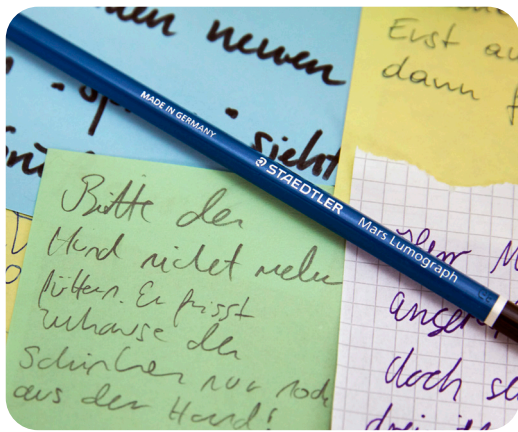 neuen
sieht
Erst au
dann f
MADE IN GERMANY
STAEDTLER
Mars Lumograph
Bitte den
Hund nicht mehr
füttern. Er frisst
Zuhause den
Schinken nur noch
aus der Hand!
Herr M
doch se